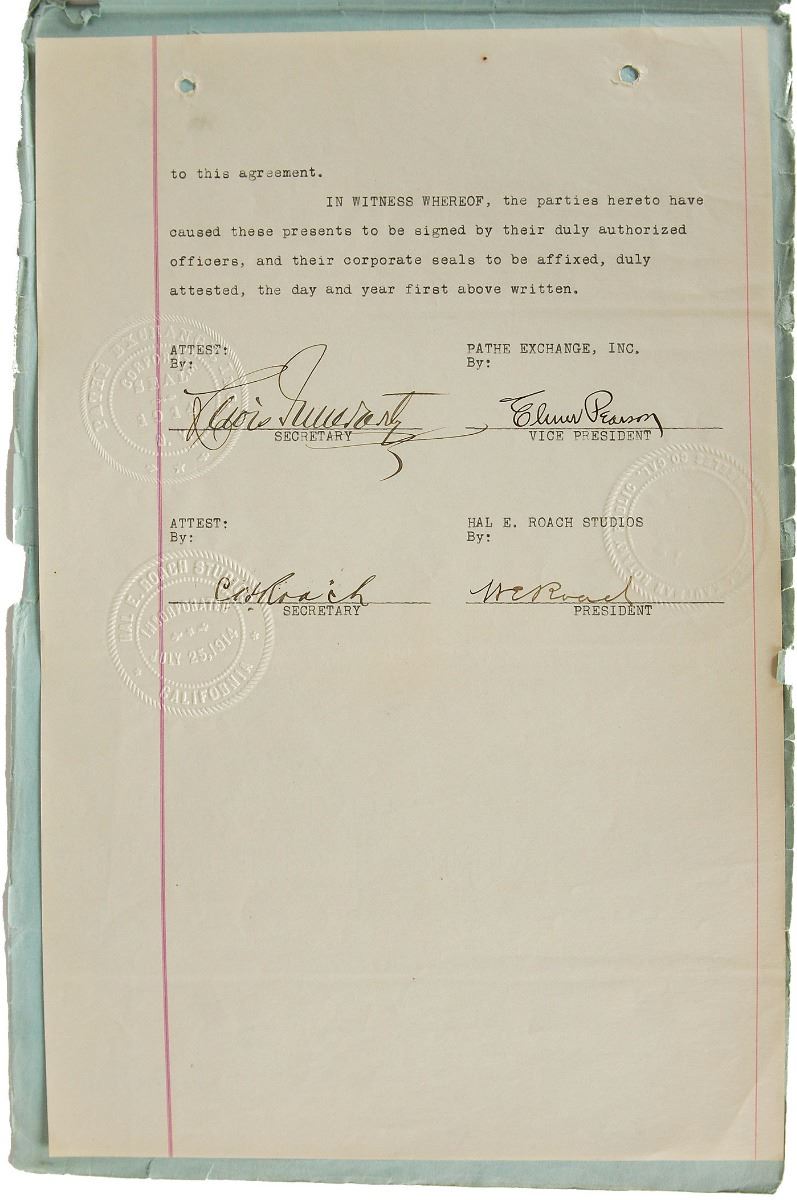 to this agreement.
IN WITNESS WHEREOF, the parties hereto have
caused these presents to be signed by their duly authorized
officers, and their corporate seals to be affixed, duly
attested, the day and year first above written.
ATTEST:
By:
PATHE EXCHANGE, INC.
By:
Lewis
Elmer Pearson
SECRETARY
VICE PRESIDENT
PATHE EXCHANGE
CORPORATE
SEAL
ATTEST:
By:
HAL E. ROACH STUDIOS
By:
C H Roach
H E Roach
SECRETARY
PRESIDENT
HAL E. ROACH STUDIOS
INCORPORATED
JULY 25, 1914
CALIFORNIA